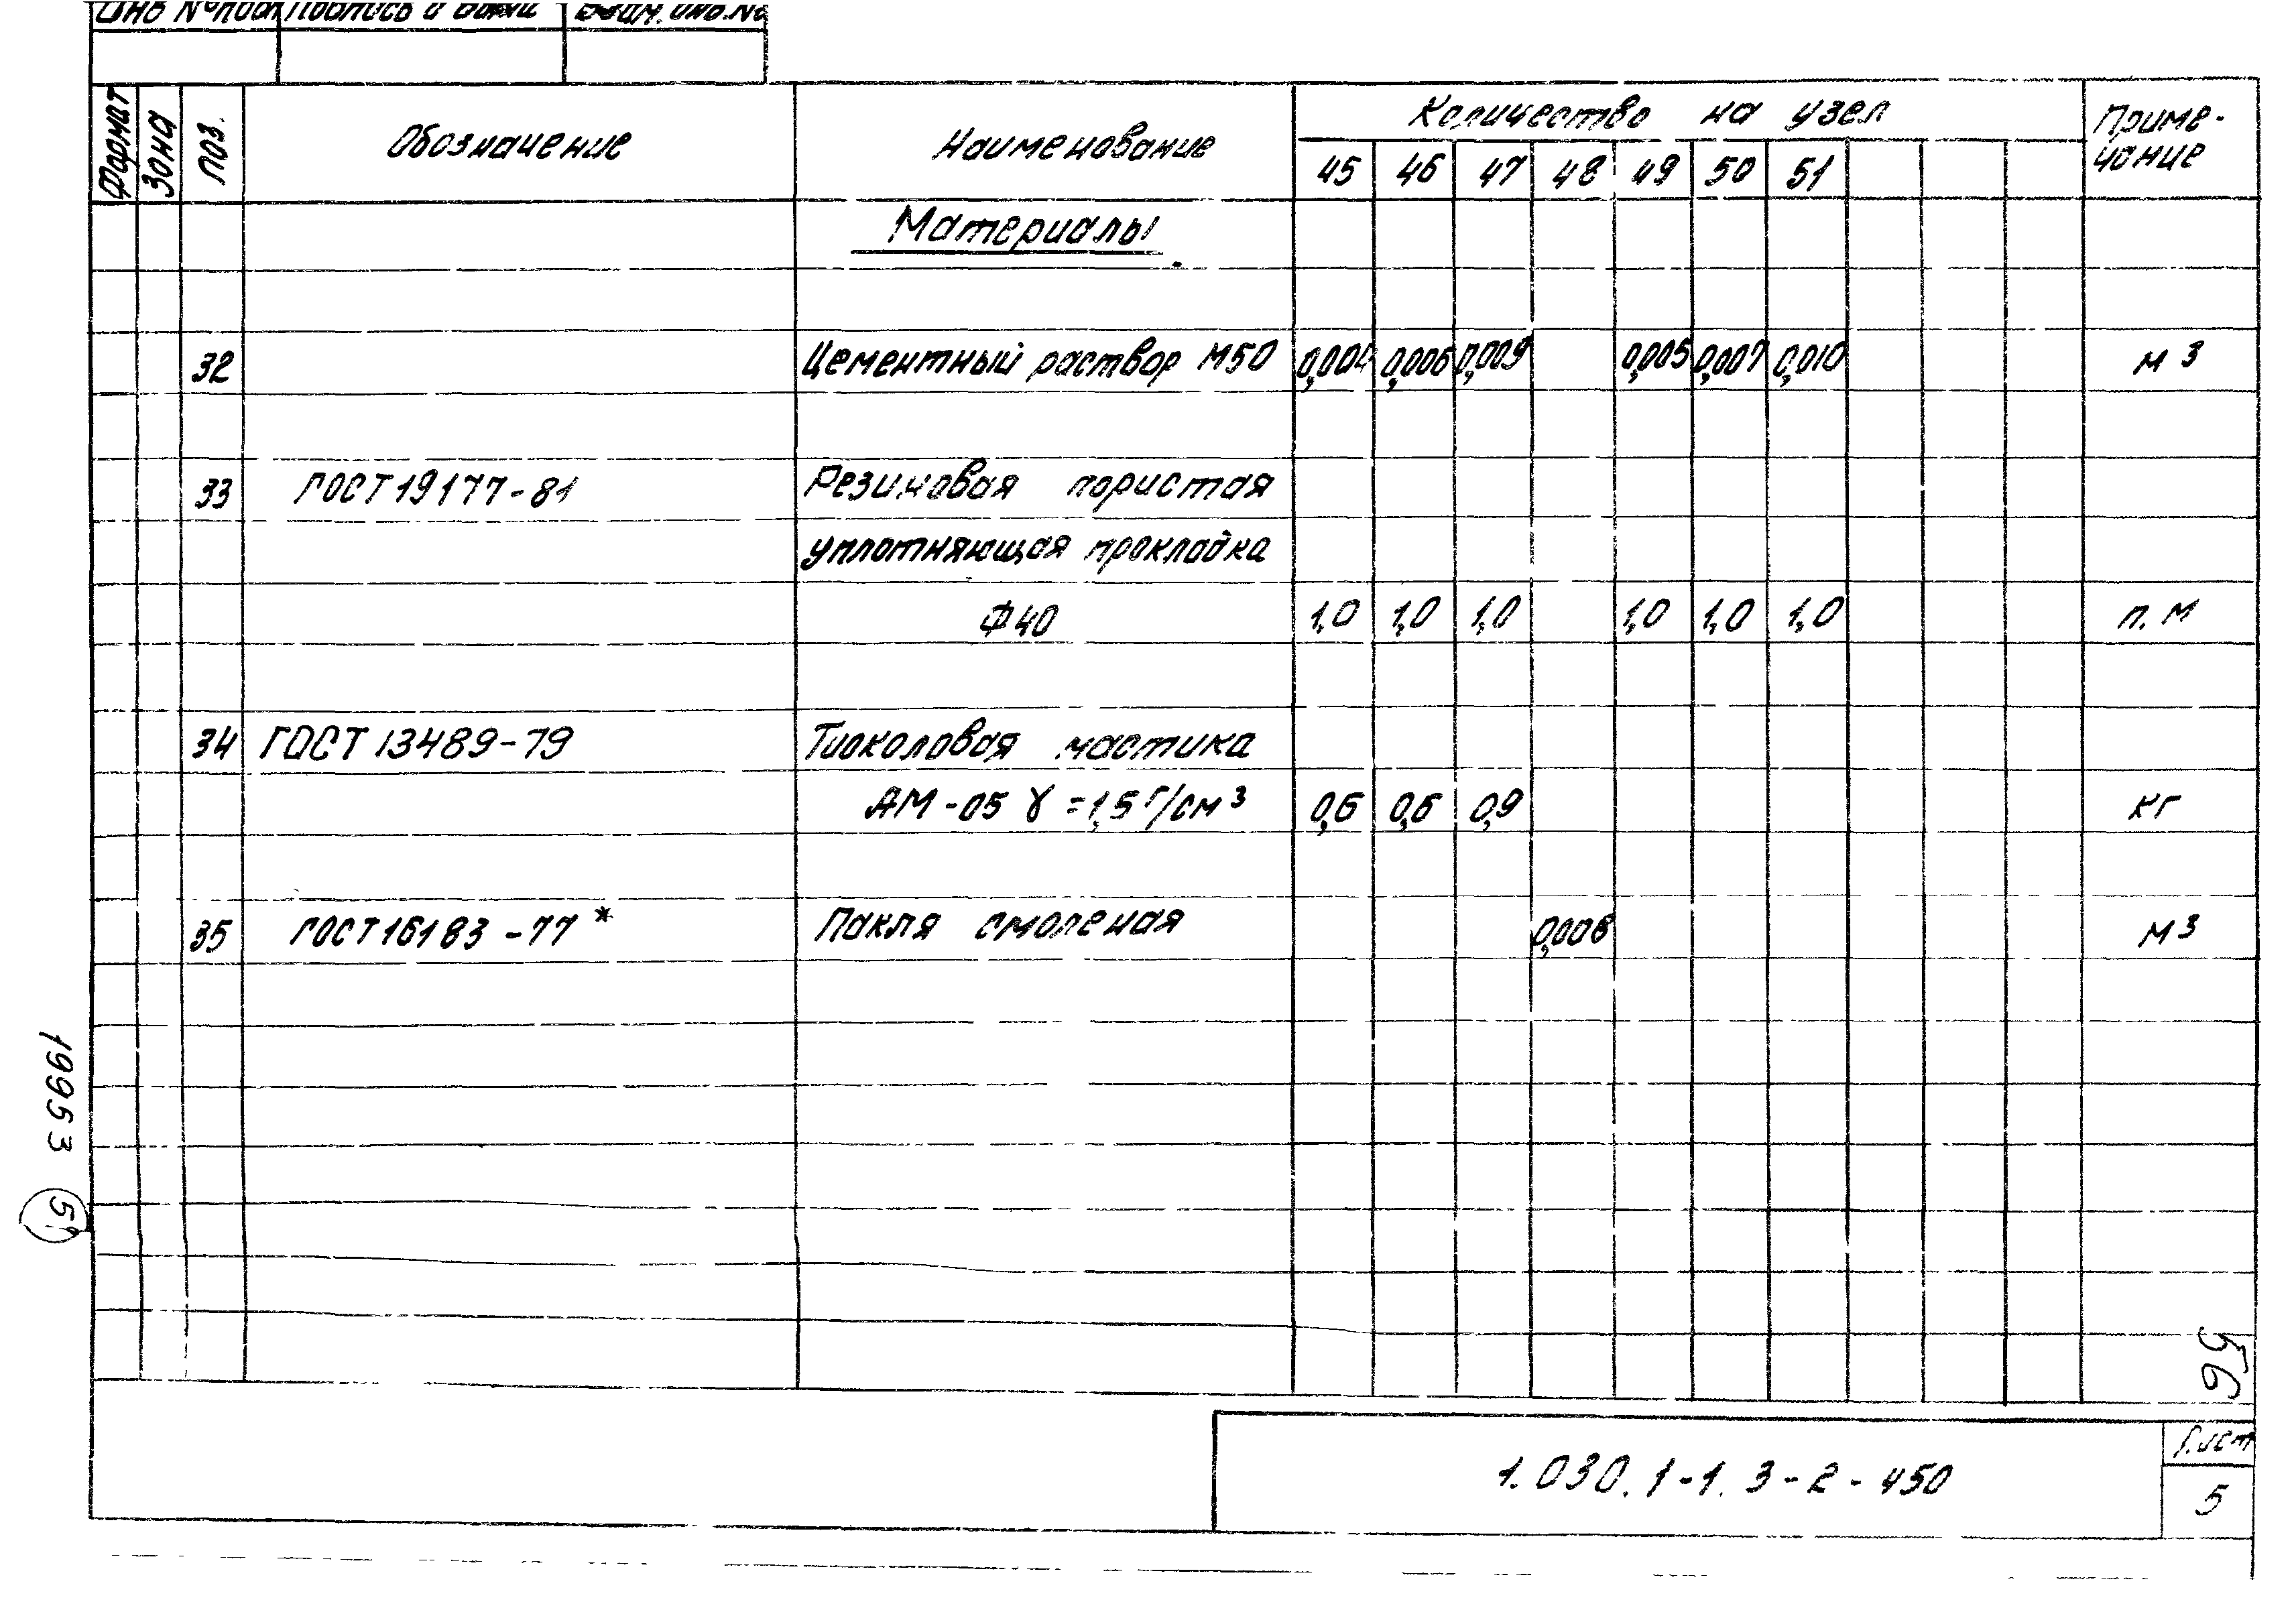 Инв № подл Подпись и дата Взам. инв. №
Формат Зона Поз. Обозначение Наименование Количество на узел Приме-
чание
45 46 47 48 49 50 51
Материалы
32 Цементный раствор М50 0,004 0,006 0,009 0,005 0,007 0,010 м3
33 ГОСТ 19177-81 Резиновая пористая
уплотняющая прокладка
Ф40 1,0 1,0 1,0 1,0 1,0 1,0 п. м
34 ГОСТ 13489-79 Тиоколовая мастика
АМ-05 γ = 1,5 г/см3 0,6 0,6 0,9 кг
35 ГОСТ 16183-77* Пакля смоленая 0,008 м3
19953
56
1.030.1-1.3-2-450
Лист
5